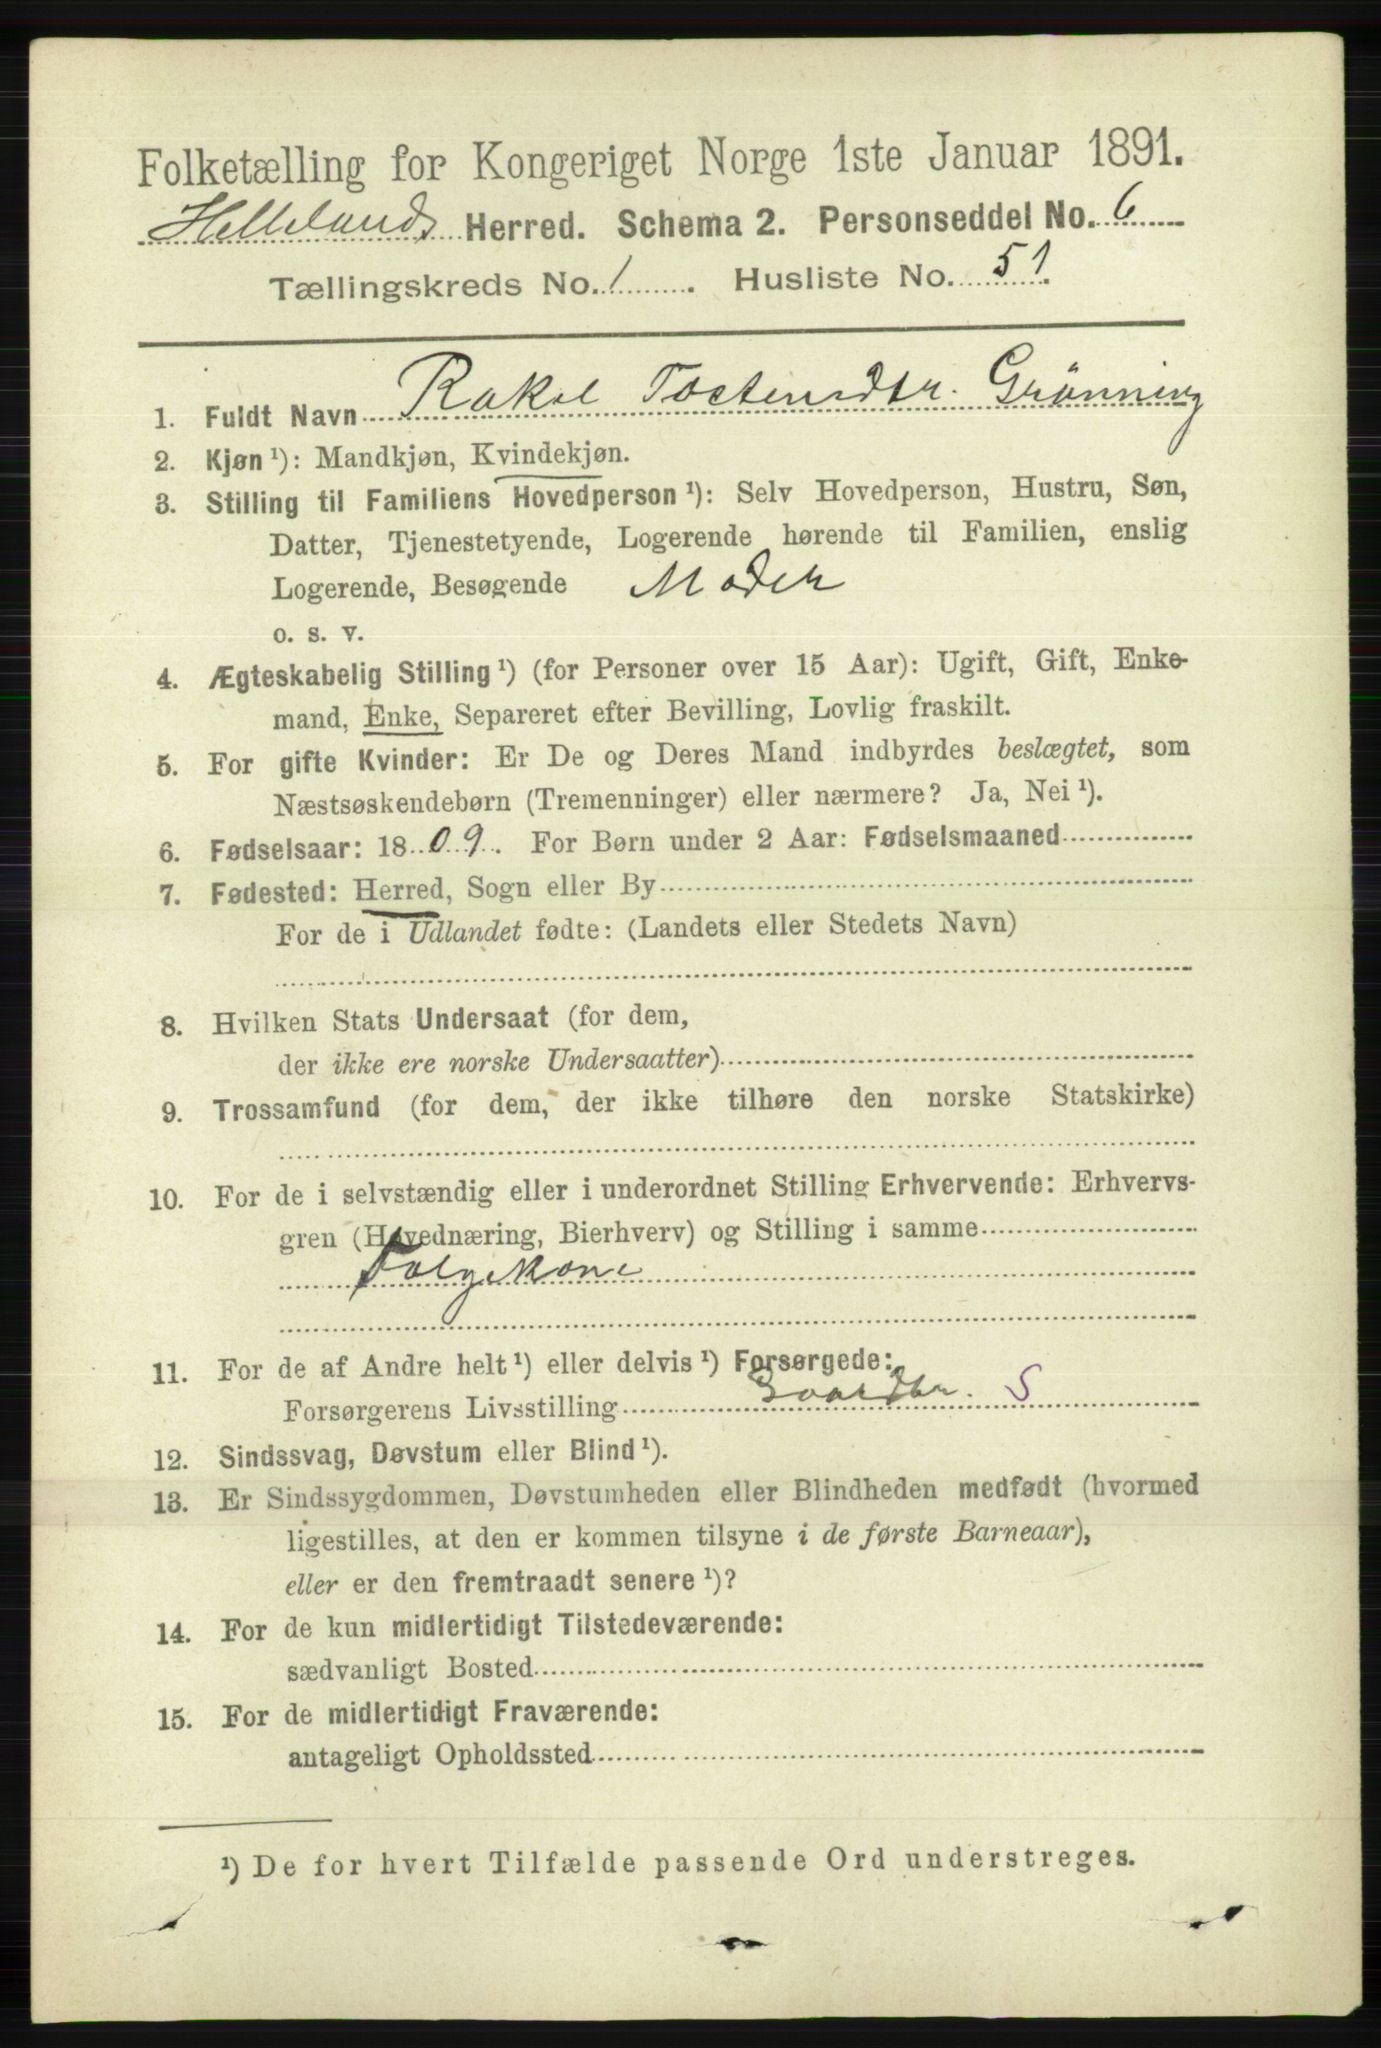 Folketælling for Kongeriget Norge 1ste Januar 1891.
Hellelands Herred. Schema 2. Personseddel No. 6
Tællingskreds No. 1. Husliste No. 51.
1. Fuldt Navn Rakel Tostensdtr. Grönning
2. Kjøn ¹): Mandkjøn, Kvindekjøn.
3. Stilling til Familiens Hovedperson ¹): Selv Hovedperson, Hustru, Søn,
Datter, Tjenestetyende, Logerende hørende til Familien, enslig
Logerende, Besøgende Moder
o. s. v.
4. Ægteskabelig Stilling ¹) (for Personer over 15 Aar): Ugift, Gift, Enke-
mand, Enke, Separeret efter Bevilling, Lovlig fraskilt.
5. For gifte Kvinder: Er De og Deres Mand indbyrdes beslægtet, som
Næstsøskendebørn (Tremenninger) eller nærmere? Ja, Nei ¹).
6. Fødselsaar: 1809. For Børn under 2 Aar: Fødselsmaaned
7. Fødested: Herred, Sogn eller By
For de i Udlandet fødte: (Landets eller Stedets Navn)
8. Hvilken Stats Undersaat (for dem,
der ikke ere norske Undersaatter)
9. Trossamfund (for dem, der ikke tilhøre den norske Statskirke)
10. For de i selvstændig eller i underordnet Stilling Erhvervende: Erhvervs-
gren (Hovednæring, Bierhverv) og Stilling i samme
Folgekone
11. For de af Andre helt ¹) eller delvis ¹) Forsørgede:
Forsørgerens Livsstilling Gaardbr. S
12. Sindssvag, Døvstum eller Blind ¹).
13. Er Sindssygdommen, Døvstumheden eller Blindheden medfødt (hvormed
ligestilles, at den er kommen tilsyne i de første Barneaar),
eller er den fremtraadt senere ¹)?
14. For de kun midlertidigt Tilstedeværende:
sædvanligt Bosted
15. For de midlertidigt Fraværende:
antageligt Opholdssted
¹) De for hvert Tilfælde passende Ord understreges.